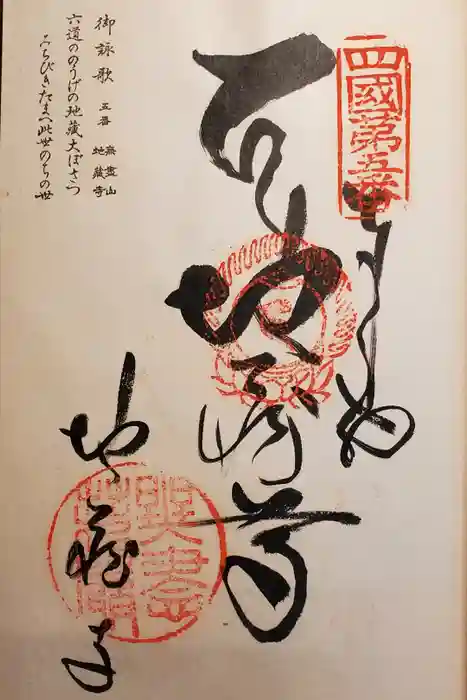 四國第五番
奉納
地蔵尊
地蔵寺
御詠歌 五番 無盡山 地蔵寺
六道ののうげの地藏大ぼさつ
みちびきたまへ此世のちの世